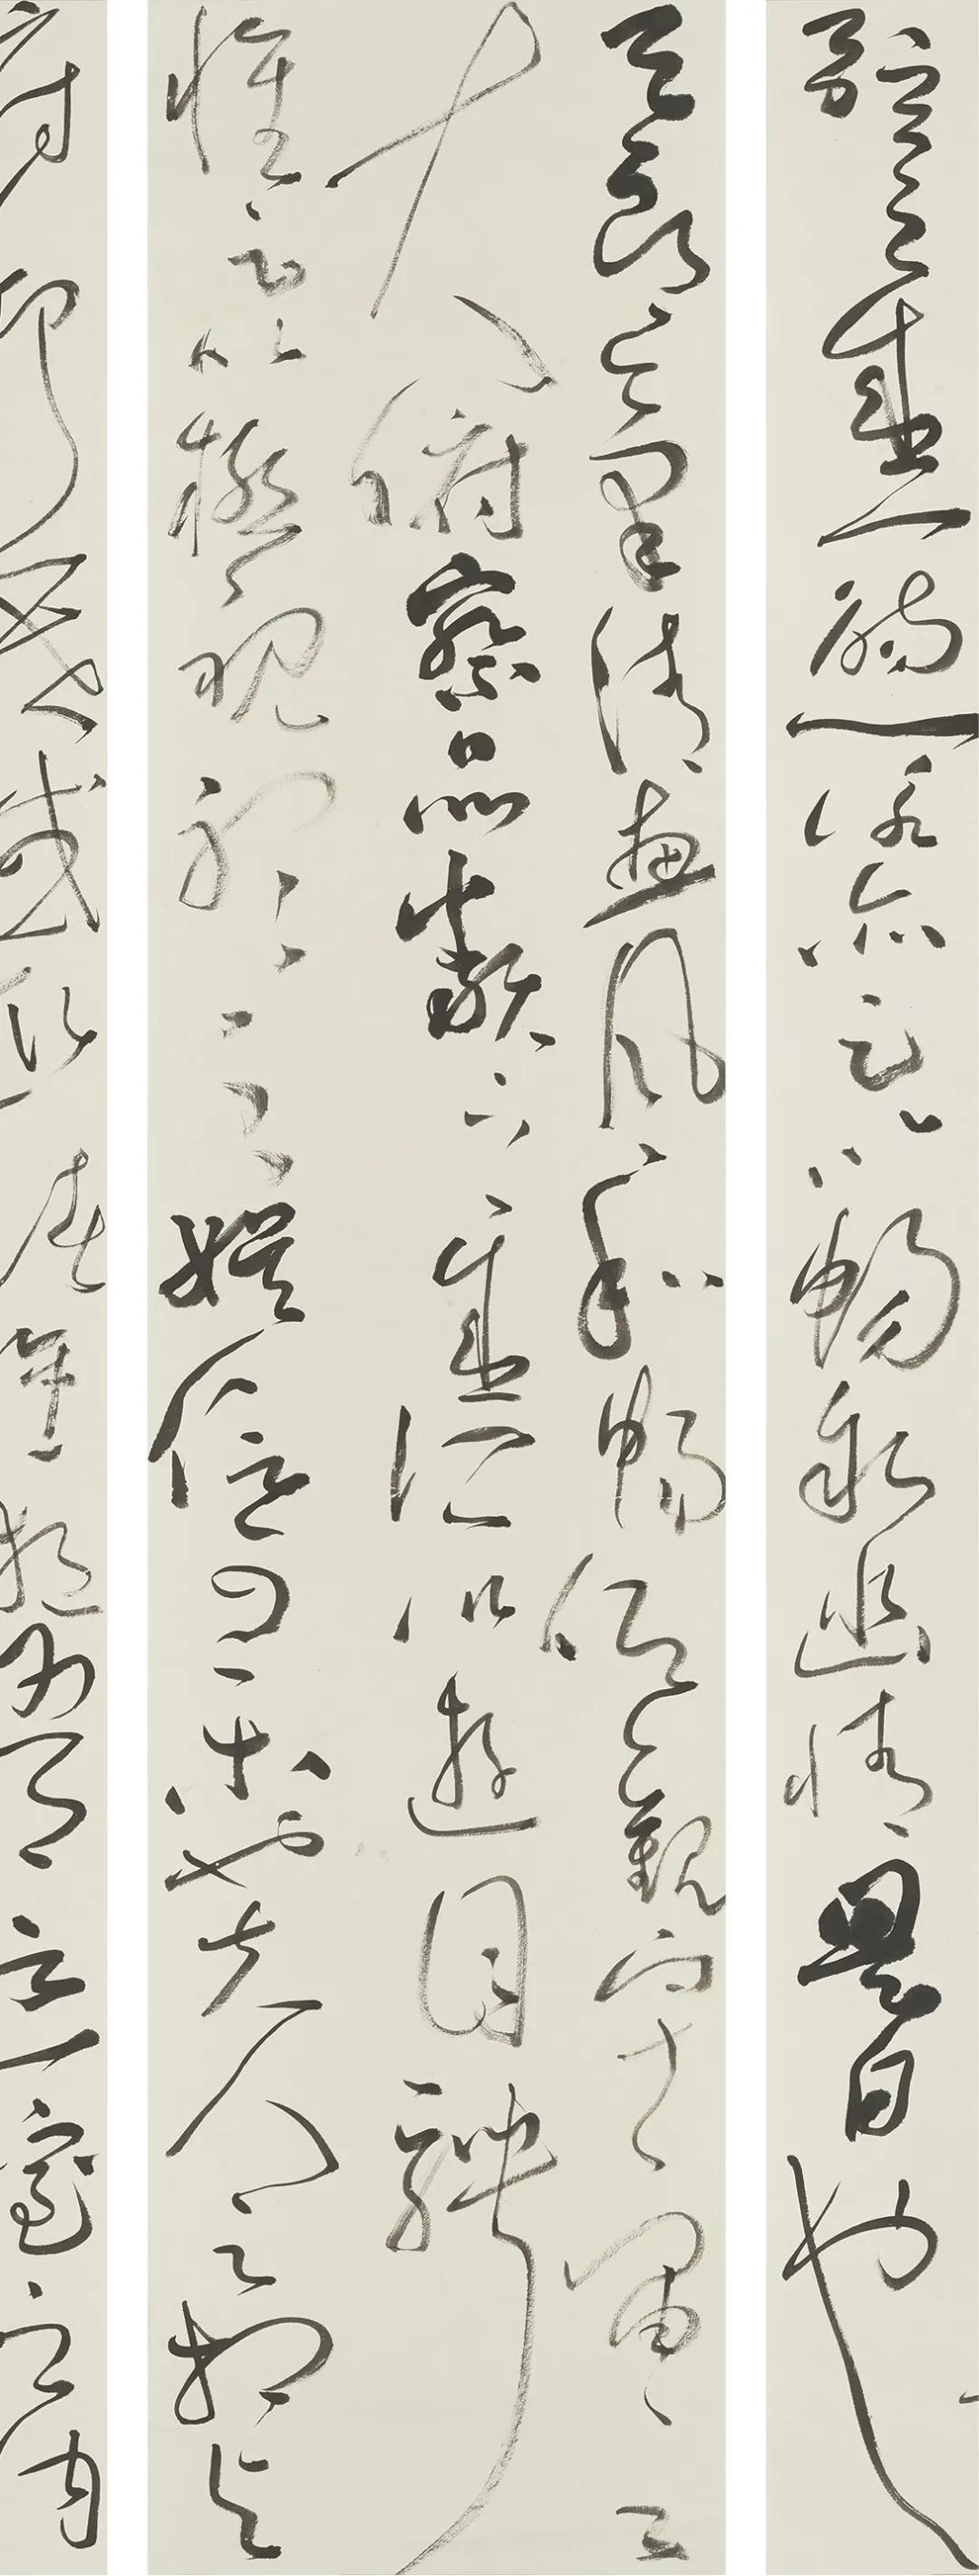 弦之盛一觴一詠亦足以暢敘幽情是日也
天朗氣清惠風和暢仰觀宇宙之
大俯察品類之盛所以遊目騁
懷足以極視聽之娛信可樂也夫人之相與
俯仰一世或取諸懷抱悟言一室之内